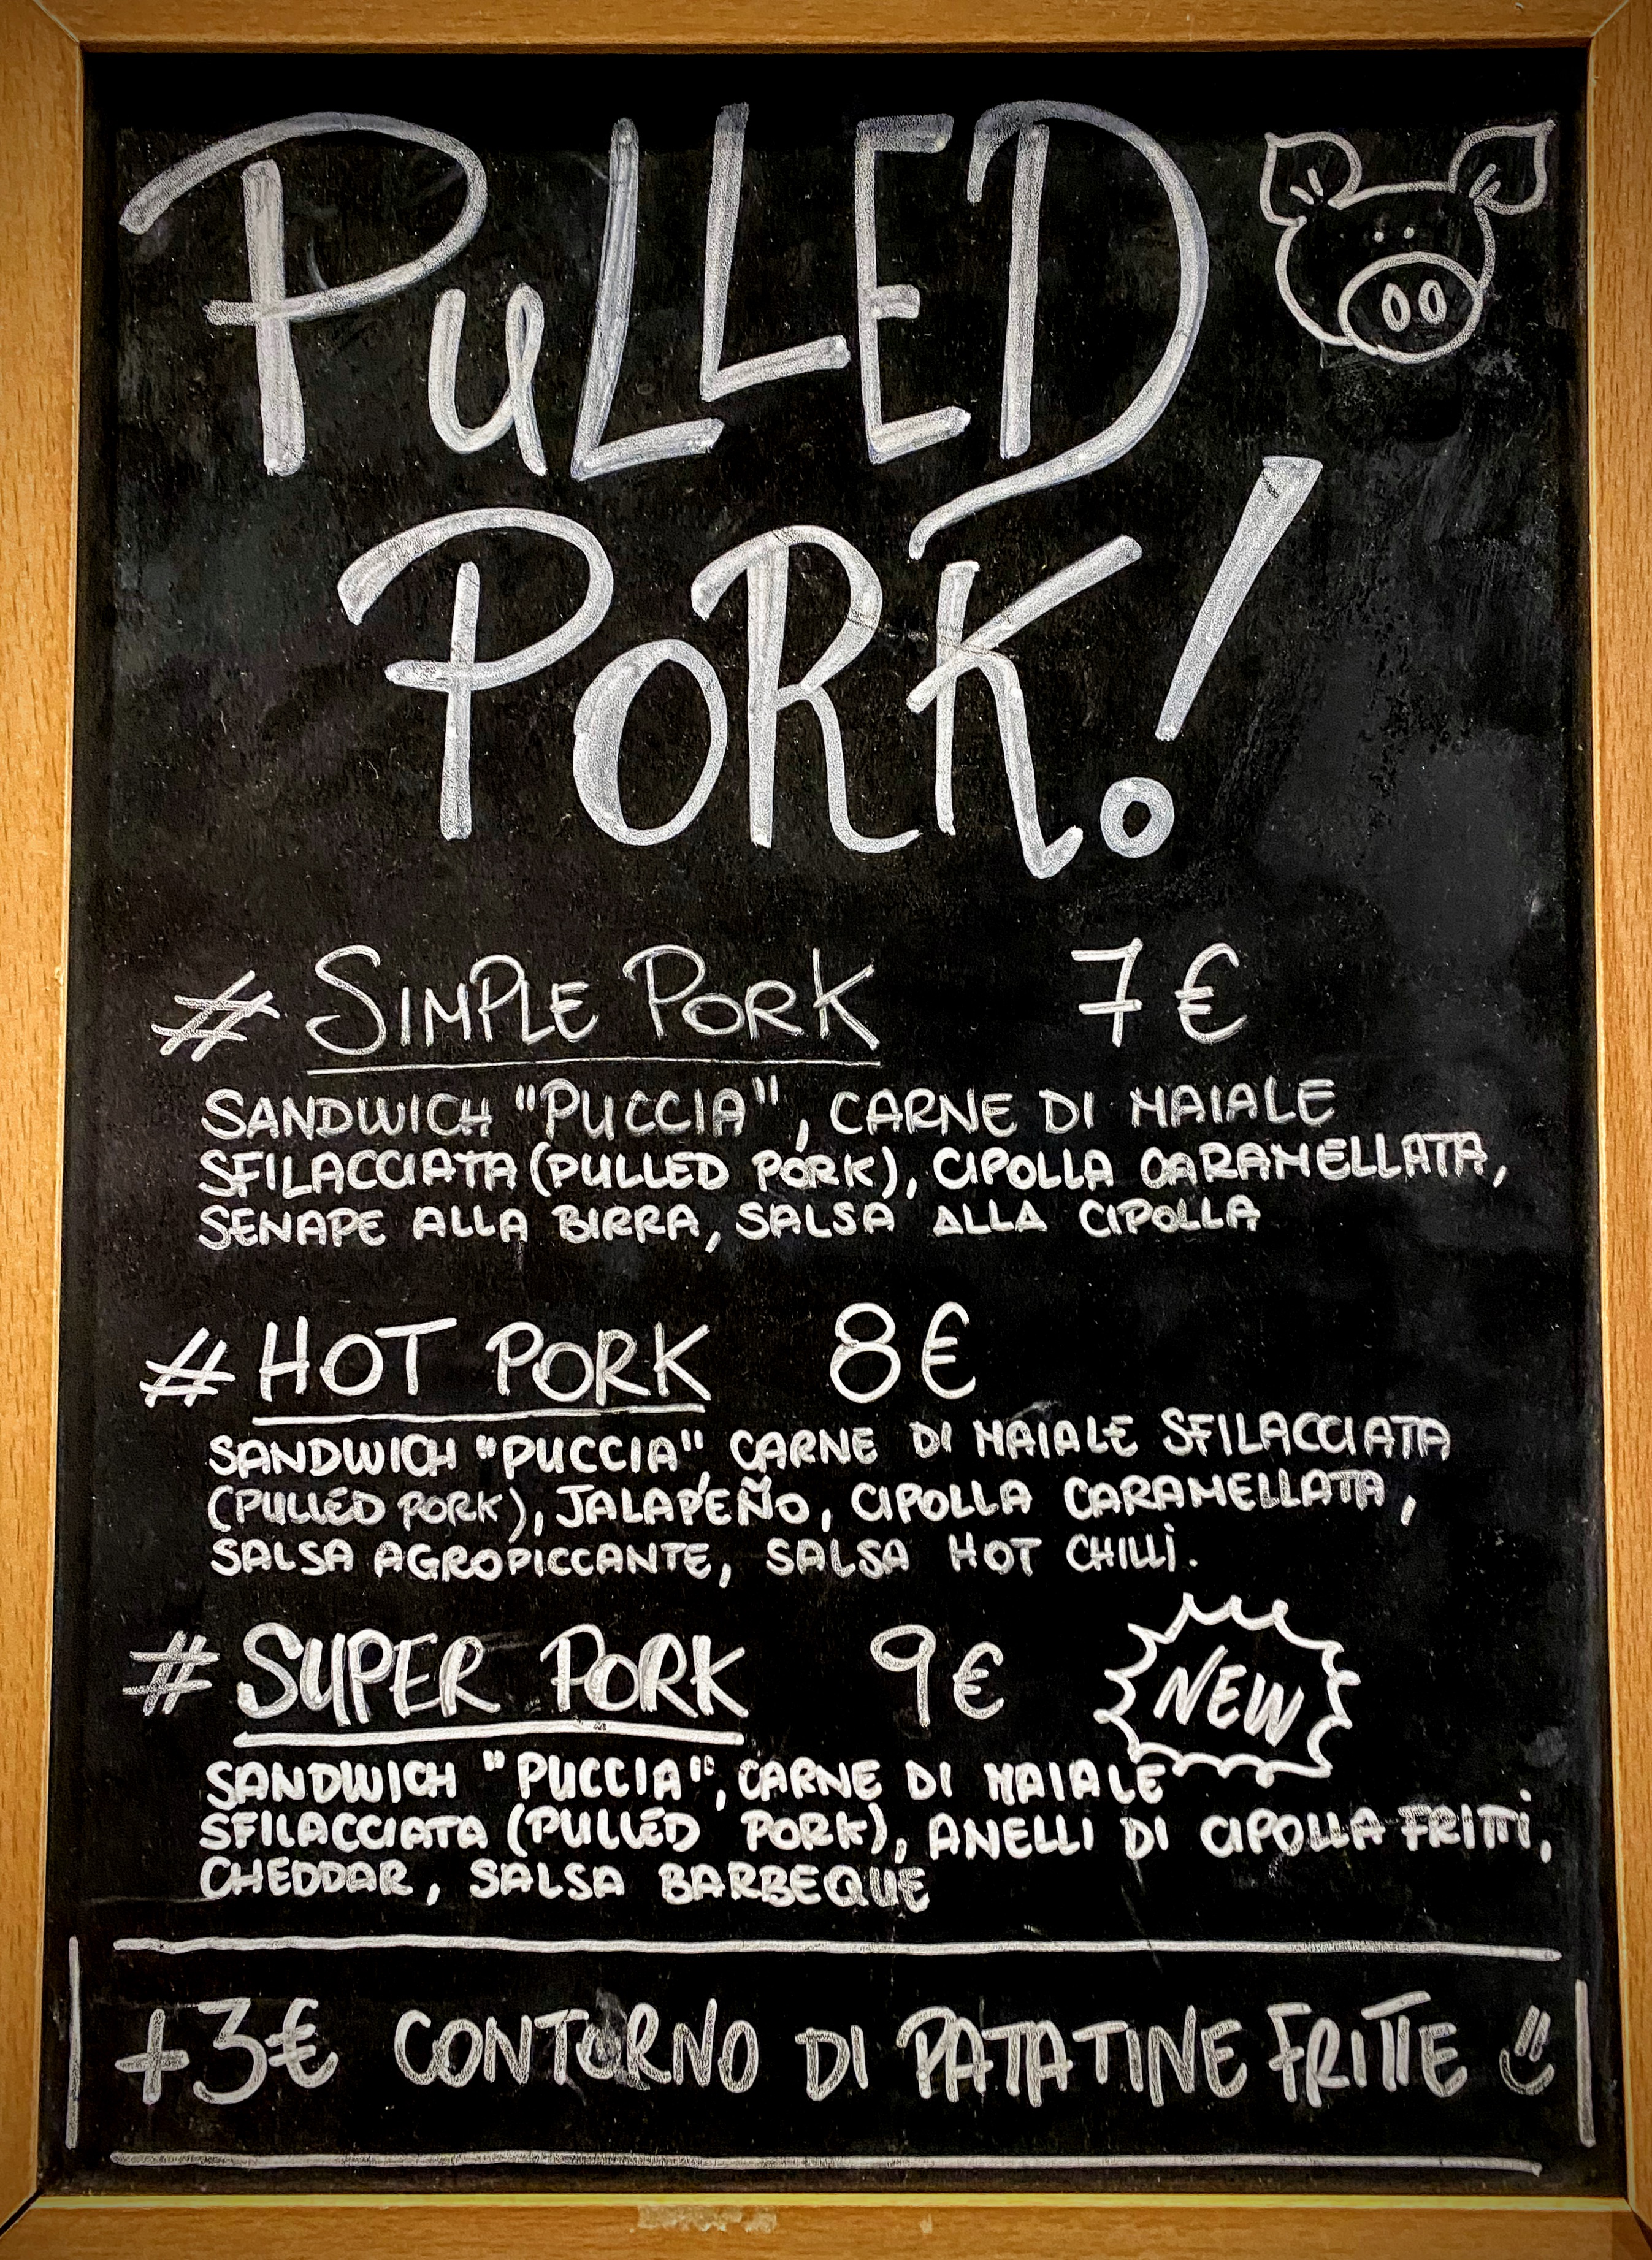 PULLED
PORK!
# SIMPLE PORK 7€
SANDWICH "PUCCIA", CARNE DI MAIALE
SFILACCIATA (PULLED PORK), CIPOLLA CARAMELLATA,
SENAPE ALLA BIRRA, SALSA ALLA CIPOLLA
# HOT PORK 8€
SANDWICH "PUCCIA", CARNE DI MAIALE SFILACCIATA
(PULLED PORK), JALAPEÑO, CIPOLLA CARAMELLATA,
SALSA AGROPICCANTE, SALSA HOT CHILLI.
# SUPER PORK 9€ NEW
SANDWICH "PUCCIA", CARNE DI MAIALE
SFILACCIATA (PULLED PORK), ANELLI DI CIPOLLA FRITTI,
CHEDDAR, SALSA BARBEQUE
+3€ CONTORNO DI PATATINE FRITTE